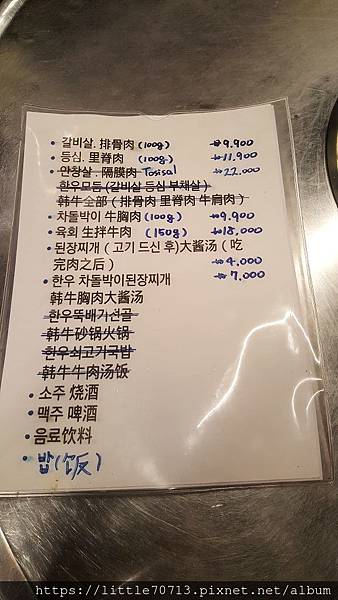 • 갈비살. 排骨肉 (100g) ₩9,900
• 등심. 里脊肉 (100g) ₩11,900
• 안창살. 隔膜肉 Tosisal ₩22,000
한우모둠 (갈비살 등심 부채살)
韩牛全部 ( 排骨肉 里脊肉 牛肩肉 )
• 차돌박이 牛胸肉 (100g) ₩9,900
• 육회 生拌牛肉 (150g) ₩18,000
• 된장찌개 ( 고기 드신 후)大酱汤 ( 吃
完肉之后 ) ₩4,000
• 한우 차돌박이된장찌개 ₩7,000
韩牛胸肉大酱汤
한우뚝배기전골
韩牛砂锅火锅
한우쇠고기국밥
韩牛牛肉汤饭
• 소주 烧酒
• 맥주 啤酒
• 음료饮料
• 밥(饭)
https://little70713.pixnet.net/album